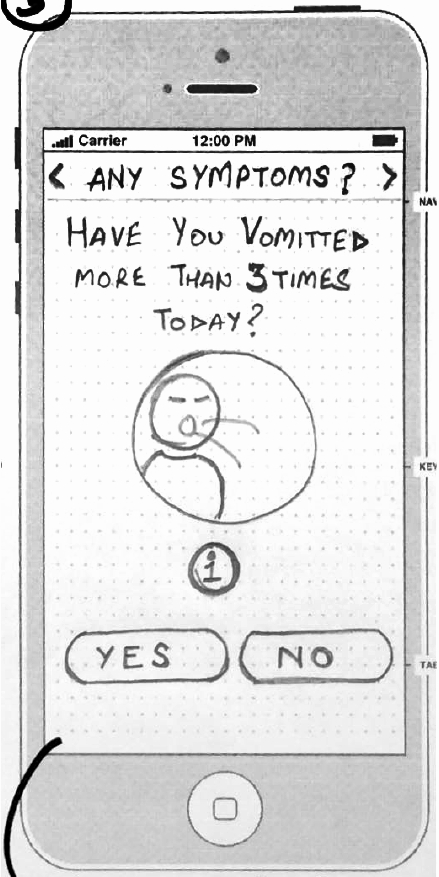 3
Carrier 12:00 PM
< ANY SYMPTOMS? >
HAVE YOU VOMITTED
MORE THAN 3 TIMES
TODAY?
i
YES NO